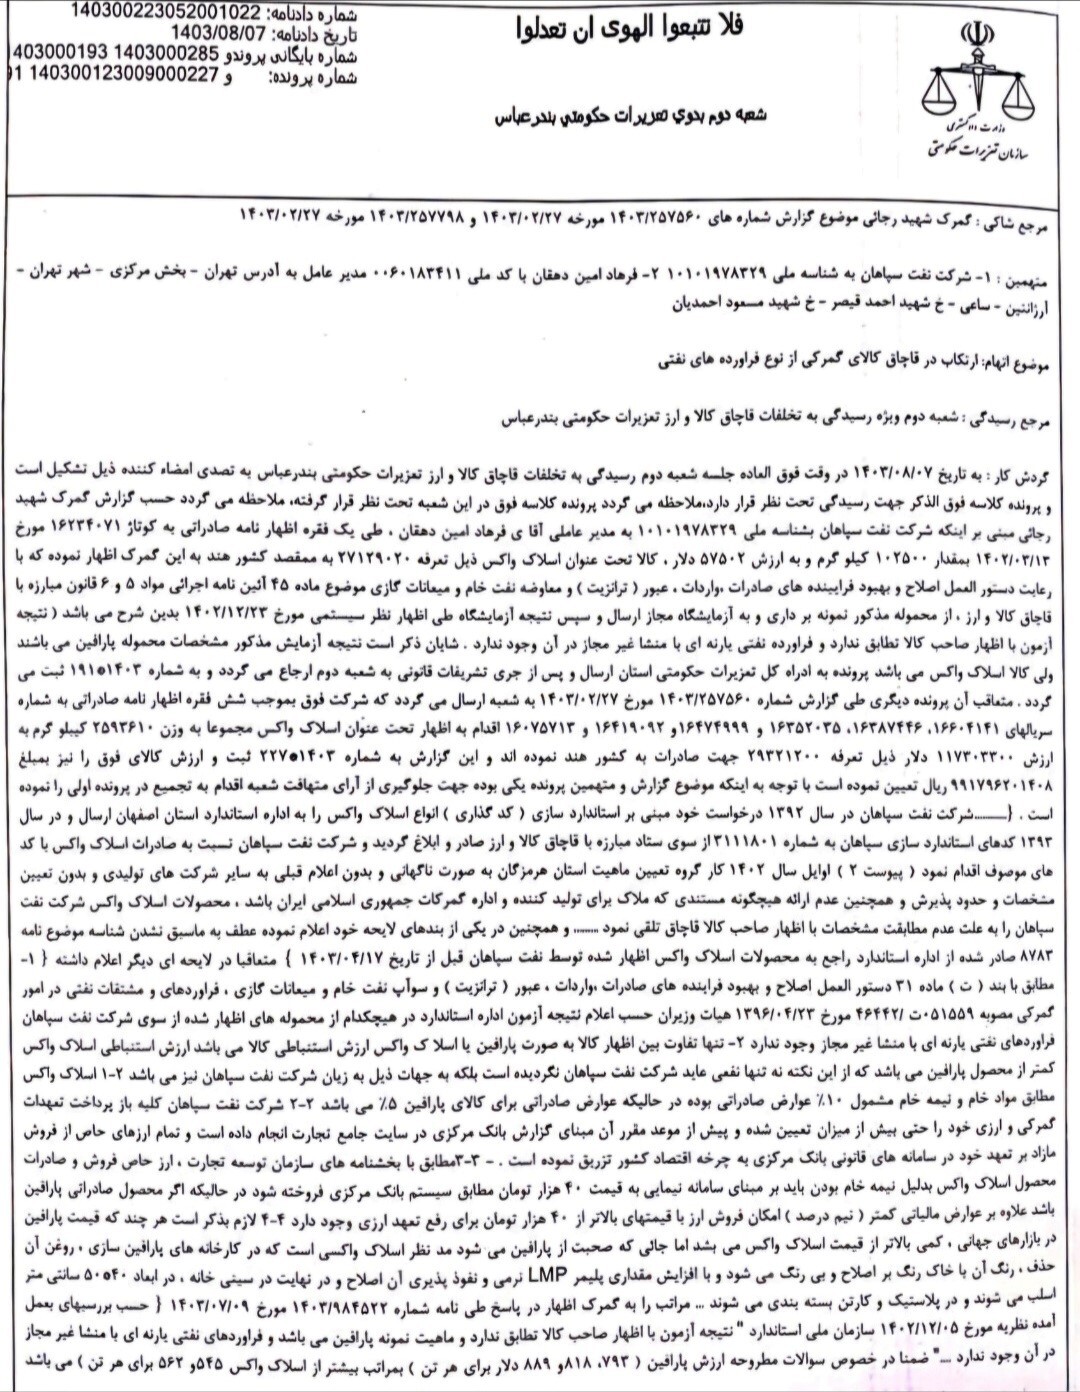 فلا تتبعوا الهوی ان تعدلوا
شماره دادنامه: 140300223052001022
تاریخ دادنامه: 1403/08/07
شماره بایگانی پروندو 1403000285 1403000193
شماره پرونده: و 140300123009000227
وزارت دادگستری
سازمان تعزیرات حکومتی
شعبه دوم بدوي تعزیرات حکومتي بندرعباس
مرجع شاکی : گمرک شهید رجائی موضوع گزارش شماره های ۱۴۰۳/۲۵۷۵۶۰ مورخه ۱۴۰۳/۰۲/۲۷ و ۱۴۰۳/۲۵۷۷۹۸ مورخه ۱۴۰۳/۰۲/۲۷
متهمین : ۱- شرکت نفت سپاهان به شناسه ملی ۱۰۱۰۱۹۷۸۳۲۹ ۲- فرهاد امین دهقان با کد ملی ۰۰۶۰۱۸۳۴۱۱ مدیر عامل به آدرس تهران - بخش مرکزی - شهر تهران -
آرژانتین - ساعی - خ شهید احمد قیصر - خ شهید مسعود احمدیان
موضوع اتهام: ارتکاب در قاچاق کالای گمرکی از نوع فراورده های نفتی
مرجع رسیدگی : شعبه دوم ویژه رسیدگی به تخلفات قاچاق کالا و ارز تعزیرات حکومتی بندرعباس
گردش کار : به تاریخ ۱۴۰۳/۰۸/۰۷ در وقت فوق العاده جلسه شعبه دوم رسیدگی به تخلفات قاچاق کالا و ارز تعزیرات حکومتی بندرعباس به تصدی امضاء کننده ذیل تشکیل است
و پرونده کلاسه فوق الذکر جهت رسیدگی تحت نظر قرار دارد،ملاحظه می گردد پرونده کلاسه فوق در این شعبه تحت نظر قرار گرفته، ملاحظه می گردد حسب گزارش گمرک شهید
رجائی مبنی بر اینکه شرکت نفت سپاهان بشناسه ملی ۱۰۱۰۱۹۷۸۳۲۹ به مدیر عاملی آقا ی فرهاد امین دهقان ، طی یک فقره اظهار نامه صادراتی به کوتاژ ۱۶۲۳۴۰۷۱ مورخ
۱۴۰۲/۰۳/۱۳ بمقدار ۱۰۲۵۰۰ کیلو گرم و به ارزش ۵۷۵۰۲ دلار ، کالا تحت عنوان اسلاک واکس ذیل تعرفه ۲۷۱۲۹۰۲۰ به ممقصد کشور هند به این گمرک اظهار نموده که با
رعایت دستور العمل اصلاح و بهبود فرایینده های صادرات ،واردات ، عبور ( ترانزیت ) و معاوضه نفت خام و میعانات گازی موضوع ماده ۴۵ آئین نامه اجرائی مواد ۵ و ۶ قانون مبارزه با
قاچاق کالا و ارز ، از محموله مذکور نمونه بر داری و به آزمایشگاه مجاز ارسال و سپس نتیجه آزمایشگاه طی اظهار نظر سیستمی مورخ ۱۴۰۲/۱۲/۲۳ بدین شرح می باشد ( نتیجه
آزمون با اظهار صاحب کالا تطابق ندارد و فراورده نفتی یارنه ای با منشا غیر مجاز در آن وجود ندارد . شایان ذکر است نتیجه آزمایش مذکور مشخصات محموله پارافین می باشند
ولی کالا اسلاک واکس می باشد پرونده به ادراه کل تعزیرات حکومتی استان ارسال و پس از جری تشریفات قانونی به شعبه دوم ارجاع می گردد و به شماره ۱۹۱۰۱۴۰۳ ثبت می
گردد . متعاقب آن پرونده دیگری طی گزارش شماره ۱۴۰۳/۲۵۷۵۶۰ مورخ ۱۴۰۳/۰۲/۲۷ به شعبه ارسال می گردد که شرکت فوق بموجب شش فقره اظهار نامه صادراتی به شماره
سریالهای ۱۶۶۰۴۱۴۱، ۱۶۳۸۷۴۴۶، ۱۶۳۵۲۰۳۵ و ۱۶۴۷۴۹۹۹و ۱۶۴۱۹۰۹۲ و ۱۶۰۷۵۷۱۳ اقدام به اظهار تحت عنوان اسلاک واکس مجموعا به وزن ۲۵۹۳۶۱۰ کیبلو گرم به
ارزش ۱۱۷۳۰۳۳۰۰ دلار ذیل تعرفه ۲۹۳۲۱۲۰۰ جهت صادرات به کشور هند نموده اند و این گزارش به شماره ۲۲۷۰۱۴۰۳ ثبت و ارزش کالای فوق را نیز بمبلغ
۹۹۱۷۹۶۲۰۱۴۰۸ ریال تعیین نموده است با توجه به اینکه موضوع گزارش و متهمین پرونده یکی بوده جهت جلوگیری از آرای متهافت شعبه اقدام به تجمیع در پرونده اولی را نموده
است . { ..........شرکت نفت سپاهان در سال ۱۳۹۲ درخواست خود مبنی بر استاندارد سازی ( کد گذاری ) انواع اسلاک واکس را به اداره استاندارد استان اصفهان ارسال و در سال
۱۳۹۳ کدهای استاندارد سازی سپاهان به شماره ۳۱۱۱۸۰۱ از سوی ستاد مبارزه با قاچاق کالا و ارز صادر و ابلاغ گردید و شرکت نفت سپاهان نسبت به صادرات اسلاک واکس با کد
های موصوف اقدام نمود ( پیوست ۲ ) اوایل سال ۱۴۰۲ کار گروه تعیین ماهیت استان هرمزگان به صورت ناگهانی و بدون اعلام قبلی به سایر شرکت های تولیدی و بدون تعیین
مشخصات و حدود پذیرش و همچنین عدم ارائه هیچگونه مستندی که ملاک برای تولید کننده و اداره گمرکات جمهوری اسلامی ایران باشد ، محصولات اسلاک واکس شرکت نفت
سپاهان را به علت عدم مطابقت مشخصات با اظهار صاحب کالا قاچاق تلقی نمود ........ و همچنین در یکی از بندهای لایحه خود اعلام نموده عطف به ماسبق نشدن شناسه موضوع نامه
۸۷۸۳ صادر شده از اداره استاندارد راجع به محصولات اسلاک واکس اظهار شده توسط نفت سپاهان قبل از تاریخ ۱۴۰۳/۰۴/۱۷ } متعاقبا در لایحه ای دیگر اعلام داشته { ۱-
مطابق با بند ( ت ) ماده ۳۱ دستور العمل اصلاح و بهبود فراینده های صادرات ،واردات ، عبور ( ترانزیت ) و سوآپ نفت خام و میعانات گازی ، فراوردهای و مشتقات نفتی در امور
گمرکی مصوبه ۰۵۱۵۵۹ت /۴۶۴۴۲ مورخ ۱۳۹۶/۰۴/۲۳ هیات وزیران حسب اعلام نتیجه آزمون اداره استاندارد در هیچکدام از محموله های اظهار شده از سوی شرکت نفت سپاهان
فراوردهای نفتی یارنه ای با منشا غیر مجاز وجود ندارد ۲- تنها تفاوت بین اظهار کالا به صورت پارافین یا اسلا ک واکس ارزش استنباطی کالا می باشد ارزش استنباطی اسلاک واکس
کمتر از محصول پارافین می باشد که از این نکته نه تنها نفعی عاید شرکت نفت سپاهان نگردیده است بلکه به جهات ذیل به زیان شرکت نفت سپاهان نیز می باشد ۲-۱ اسلاک واکس
مطابق مواد خام و نیمه خام مشمول ۱۰٪ عوارض صادراتی بوده در حالیکه عوارض صادراتی برای کالای پارافین ۵٪ می باشد ۲-۲ شرکت نفت سپاهان کلیه باز پرداخت تعهدات
گمرکی و ارزی خود را حتی بیش از میزان تعیین شده و پیش از موعد مقرر آن مبنای گزارش بانک مرکزی در سایت جامع تجارت انجام داده است و تمام ارزهای حاص از فروش
مازاد بر تعهد خود در سامانه های قانونی بانک مرکزی به چرخه اقتصاد کشور تزریق نموده است . - ۳-۳مطابق با بخشنامه های سازمان توسعه تجارت ، ارز حاص فروش و صادرات
محصول اسلاک واکس بدلیل نیمه خام بودن باید بر مبنای سامانه نیمایی به قیمت ۴۰ هزار تومان مطابق سیستم بانک مرکزی فروخته شود در حالیکه اگر محصول صادراتی پارافین
باشد علاوه بر عوارض مالیاتی کمتر ( نیم درصد ) امکان فروش ارز با قیمتهای بالاتر از ۴۰ هزار تومان برای رفع تعهد ارزی وجود دارد ۴-۴ لازم بذکر است هر چند که قیمت پارافین
در بازارهای جهانی ، کمی بالاتر از قیمت اسلاک واکس می بشد اما جائی که صحبت از پارافین می شود مد نظر اسلاک واکسی است که در کارخانه های پارافین سازی ، روغن آن
حذف ، رنگ آن با خاک رنگ بر اصلاح و بی رنگ می شود و با افزایش مقداری پلیمر LMP نرمی و نفوذ پذیری آن اصلاح و در نهایت در سینی خانه ، در ابعاد ۵۰۰۴۰ سانتی متر
اسلب می شوند و در پلاستیک و کارتن بسته بندی می شوند ... مراتب را به گمرک اظهار در پاسخ طی نامه شماره ۱۴۰۳/۹۸۴۵۲۲ مورخ ۱۴۰۳/۰۷/۰۹ { حسب بررسیهای بعمل
آمده نظریه مورخ ۱۴۰۲/۱۲/۰۵ سازمان ملی استاندارد " نتیجه آزمون با اظهار صاحب کالا تطابق ندارد و ماهیت نمونه پارافین می باشد و فراوردهای نفتی یارنه ای با منشا غیر مجاز
در آن وجود ندارد ..." ضمنا در خصوص سوالات مطروحه ارزش پارافین ( ۷۹۳، ۸۱۸و ۸۸۹ دلار برای هر تن ) بمراتب بیشتر از اسلاک واکس ۵۴۵و ۵۶۲ برای هر تن ) می باشد